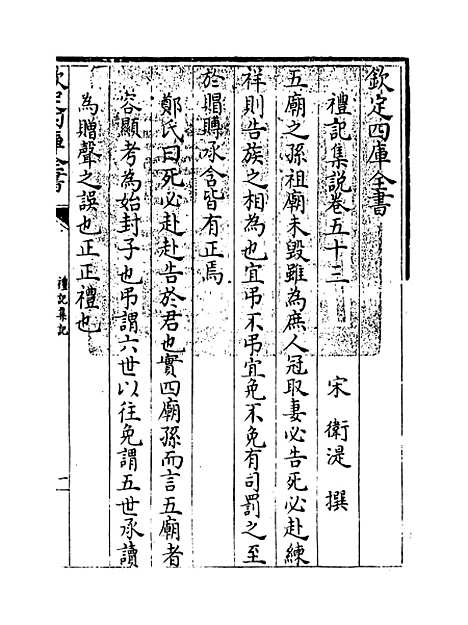 欽定四庫全書
禮記集說卷五十三
宋 衛湜 撰
五廟之孫祖廟未毀雖為庶人冠取妻必告死必赴練
祥則告族之相為也宜弔不弔宜免不免有司罰之至
於賵賻承含皆有正焉
鄭氏曰死必赴赴告於君也實四廟孫而言五廟者
容顯考為始封子也弔謂六世以往免謂五世承讀
為贈聲之誤也正正禮也
欽定四庫全書
禮記集說
一